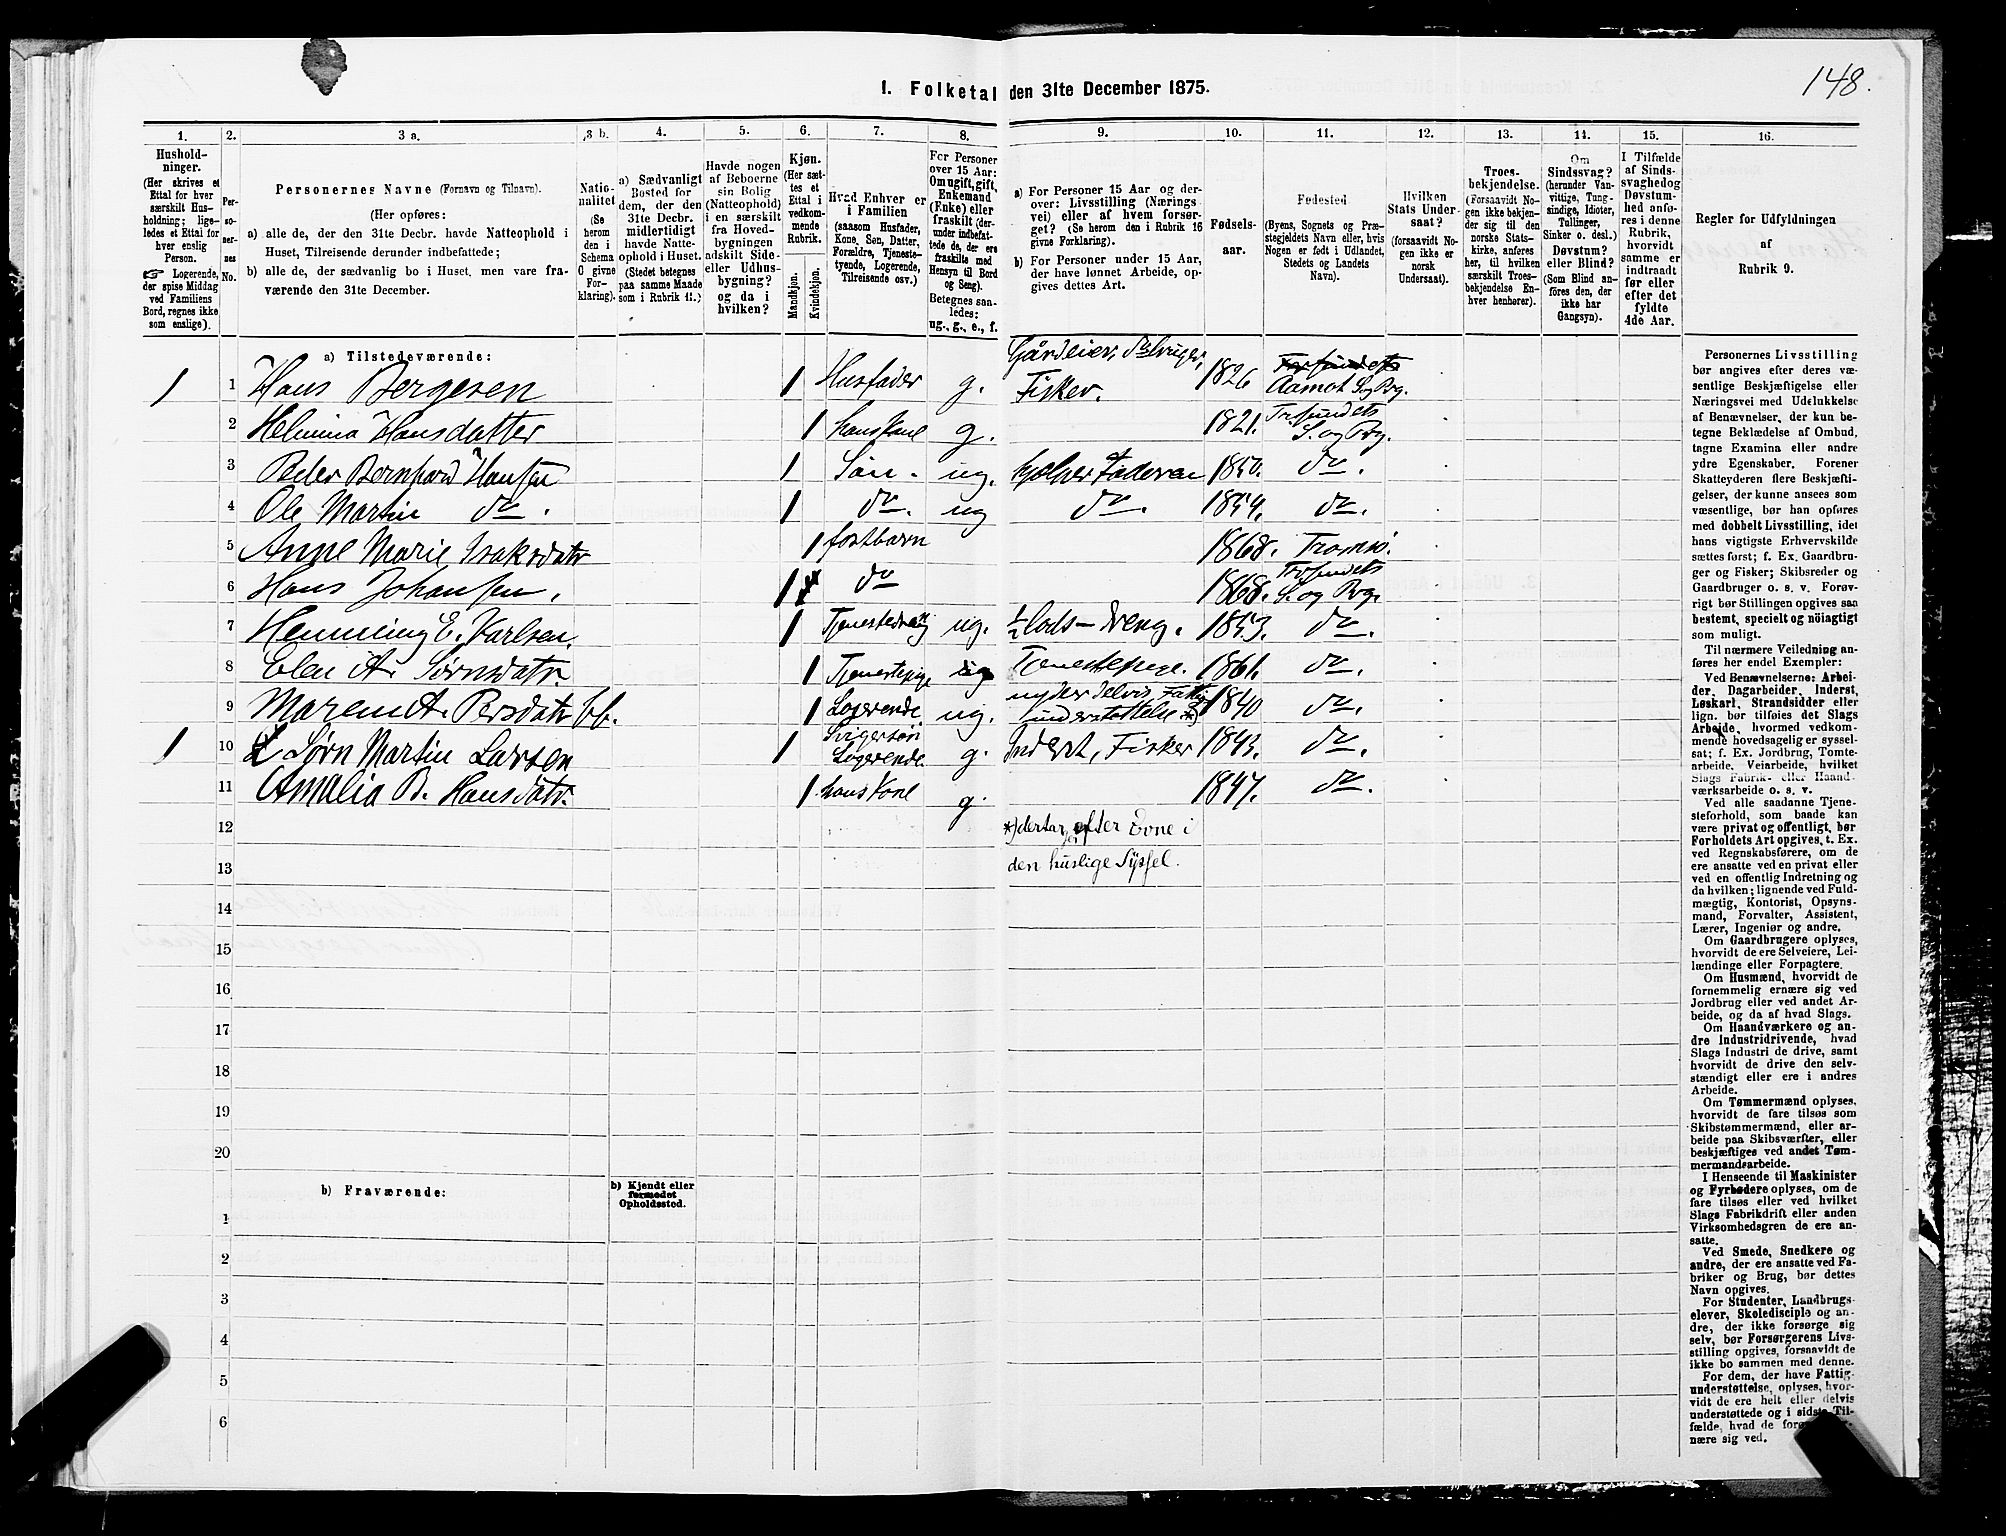 148.
1. Folketal den 31te December 1875.
1. 2. 3 a. 3 b. 4. 5. 6. 7. 8. 9. 10. 11. 12. 13. 14. 15. 16.
Hushold-
ninger.
(Her skrives et
Ettal for hver
særskilt Hus-
holdning; lige-
ledes et Ettal for
hver enslig
Person.
☞ Logerende,
der spise Middag
ved Familiens
Bord, regnes ikke
som enslige).
Per-
so-
ner-
nes
No.
Personernes Navne (Fornavn og Tilnavn).
(Her opføres:
a) alle de, der den 31te Decbr. havde Natteophold i
Huset, Tilreisende derunder indbefattede;
b) alle de, der sædvanlig bo i Huset, men vare fra-
værende den 31te December.
Natio-
nalitet
(Se
herom
den i
Schema
C givne
For-
klaring).
a) Sædvanligt
Bosted for
dem, der den
31te Decbr.
midlertidigt
havde Natte-
ophold i Huset.
(Stedet betegnes
paa samme Maade
som i Rubrik 11.)
Havde nogen
af Beboerne
sin Bolig
(Natteophold)
i en særskilt
fra Hoved-
bygningen
adskilt Side-
eller Udhus-
bygning?
og da i
hvilken?
Kjøn.
(Her sæt-
tes et
Ettal i
vedkom-
mende
Rubrik.
Mandkjøn.
Kvindekjøn.
Hvad Enhver er
i Familien
(saasom Husfader,
Kone, Søn, Datter,
Forældre, Tjeneste-
tyende, Logerende,
Tilreisende osv.)
For Personer
over 15 Aar:
Om ugift, gift,
Enkemand
(Enke) eller
fraskilt (der-
under indbefat-
tede de, der ere
fraskilte med
Hensyn til Bord
og Seng).
Betegnes saa-
ledes:
ug., g., e., f.
a) For Personer 15 Aar og der-
over: Livsstilling (Nærings-
vei) eller af hvem forsør-
get? (Se herom den i Rubrik 16
givne Forklaring).
b) For Personer under 15 Aar,
der have lønnet Arbeide, op-
gives dettes Art.
Fødsels-
aar.
Fødested
(Byens, Sognets og Præ-
stegjeldets Navn eller, hvis
Nogen er født i Udlandet,
Stedets og Landets
Navn).
Hvilken
Stats Under-
saat?
(forsaavidt No-
gen ikke er
norsk
Undersaat).
Troes-
bekjendelse.
(Forsaavidt No-
gen ikke bekjen-
der sig til den
norske Stats-
kirke, anføres
her, til hvilken
særskilt Troes-
bekjendelse En-
hver henhører).
Om
Sindssvag?
(herunder Van-
vittige, Tung-
sindige, Idioter,
Tullinger,
Sinker o. desl.)
Døvstum?
eller Blind?
(Som Blind an-
føres den, der
ikke har
Gangsyn).
I Tilfælde
af Sinds-
svaghed og
Døvstum-
hed anfø-
res i denne
Rubrik,
hvorvidt
samme er
indtraadt
før eller
efter det
fyldte
4de Aar.
Regler for Udfyldningen
af
Rubrik 9.
a) Tilstedeværende:
1 1 Hans Bergesen 1 Husfader g. Gårdeier, Selvbruger, Fisker. 1826 Aamot S. og Prg.
2 Helmina Hansdatter 1 hans Kone g. 1821. Trofundets S. og Prg.
3 Peder Bernhard Hansen 1 Søn. ug. hjelper Faderen 1850. do.
4 Ole Martin do. 1 do. ug do. 1854. do.
5 Anne Marie Isaksdatr 1 fostbarn 1868. Tromsø.
6 Hans Johansen. 1 do 1868. Trofundets S. og Prg.
7 Henning E. Karlsen. 1 Tjenestedreng ug. Lods-dreng. 1853. do.
8 Elen A. Sørnsdatr. 1 Tjenestepige ug Tjenestepige. 1861. do.
9 Maren A. Persdatr 1 Logerende ug. nyder delvis Fattig understøttelse *) 1840 do.
1 10 Sørn Martin Larsen 1 Svigersøn Logerende g. Inderst, Fisker 1843. do.
11 Amalia B. Hansdatr. 1 hans Kone g. 1847. do.
12 *) deltar efter Evne i
13 den huslige Syssel.
14
15
16
17
18
19
20
b) Fraværende:
b) Kjendt eller
formodet
Opholdssted.
1
2
3
4
5
6
Personernes Livsstilling
bør angives efter deres væ-
sentlige Beskjæftigelse eller
Næringsvei med Udelukkelse
af Benævnelser, der kun be-
tegne Beklædelse af Ombud,
tagne Examina eller andre
ydre Egenskaber. Forener
Skatteyderen flere Beskjæfti-
gelser, der kunne ansees som
væsentlige, bør han opføres
med dobbelt Livsstilling, idet
hans vigtigste Erhvervskilde
sættes først; f. Ex. Gaardbru-
ger og Fisker; Skibsreder og
Gaardbruger o. s. v. Forøv-
rigt bør Stillingen opgives saa
bestemt, specielt og nøiagtigt
som muligt.
Til nærmere Veiledning an-
føres her endel Exempler:
Ved Benævnelserne: Arbei-
der, Dagarbeider, Inderst,
Løskarl, Strandsidder eller
lign. bør tilføies det Slags
Arbejde, hvormed vedkom-
mende hovedsagelig er syssel-
sat; f. Ex. Jordbrug, Tomte-
arbeide, Veiarbeide, hvilket
Slags Fabrik- eller Haand-
værksarbeide o. s. v.
Ved alle saadanne Tjene-
steforhold, som baade kan
være privat og offentligt, bør
Forholdets Art opgives, t. Ex.
ved Regnskabsførere, om de
ere ansatte ved en privat eller
ved en offentlig Indretning og
da hvilken; lignende ved Fuld-
mægtig, Kontorist, Opsyns-
mand, Forvalter, Assistent,
Lærer, Ingeniør og andre.
Om Gaardbrugere oplyses,
hvorvidt de ere Selveiere, Lei-
lændinge eller Forpagtere.
Om Husmænd, hvorvidt de
fornemmelig ernære sig ved
Jordbrug eller ved andet Ar-
beide, og da af hvad Slags.
Om Haandværkere og an-
dre Industridrivende, hvad
Slags Industri de drive, samt
hvorvidt de drive den selv-
stændigt eller ere i andres
Arbeide.
Om Tømmermænd oplyses,
hvorvidt de fare tilsøs som
Skibstømmermænd, eller ar-
beide paa Skibsværfter, eller
beskjæftiges ved andet Tøm-
mermandsarbeide.
I Henseende til Maskinister
og Fyrbødere oplyses, om de
fare tilsøs eller ved hvilket
Slags Fabrikdrift eller anden
Virksomhedsgren de ere an-
satte.
Ved Smede, Snedkere og
andre, der ere ansatte ved Fa-
briker og Brug, bør dettes
Navn opgives.
For Studenter, Landbrugs-
elever, Skoledisciple og an-
dre, der ikke forsørge sig
selv, bør Forsørgerens Livs-
stilling opgives, forsaavidt de
ikke bo sammen med denne.
For dem, der have Fattig-
understøttelse, oplyses, hvor-
vidt de ere helt eller delvis
understøttede og i sidste Til-
fælde, hvad de
nære sig ved.